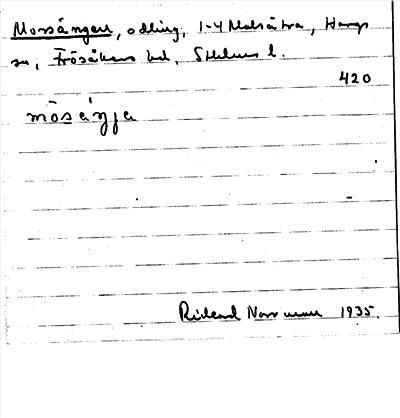 Mossängen, odling, 1-4 Malsätra, Hargs
sn, Frösåkers hd, Sthlms l.
420
mòsáŋŋa
Rickard Norrman 1935.